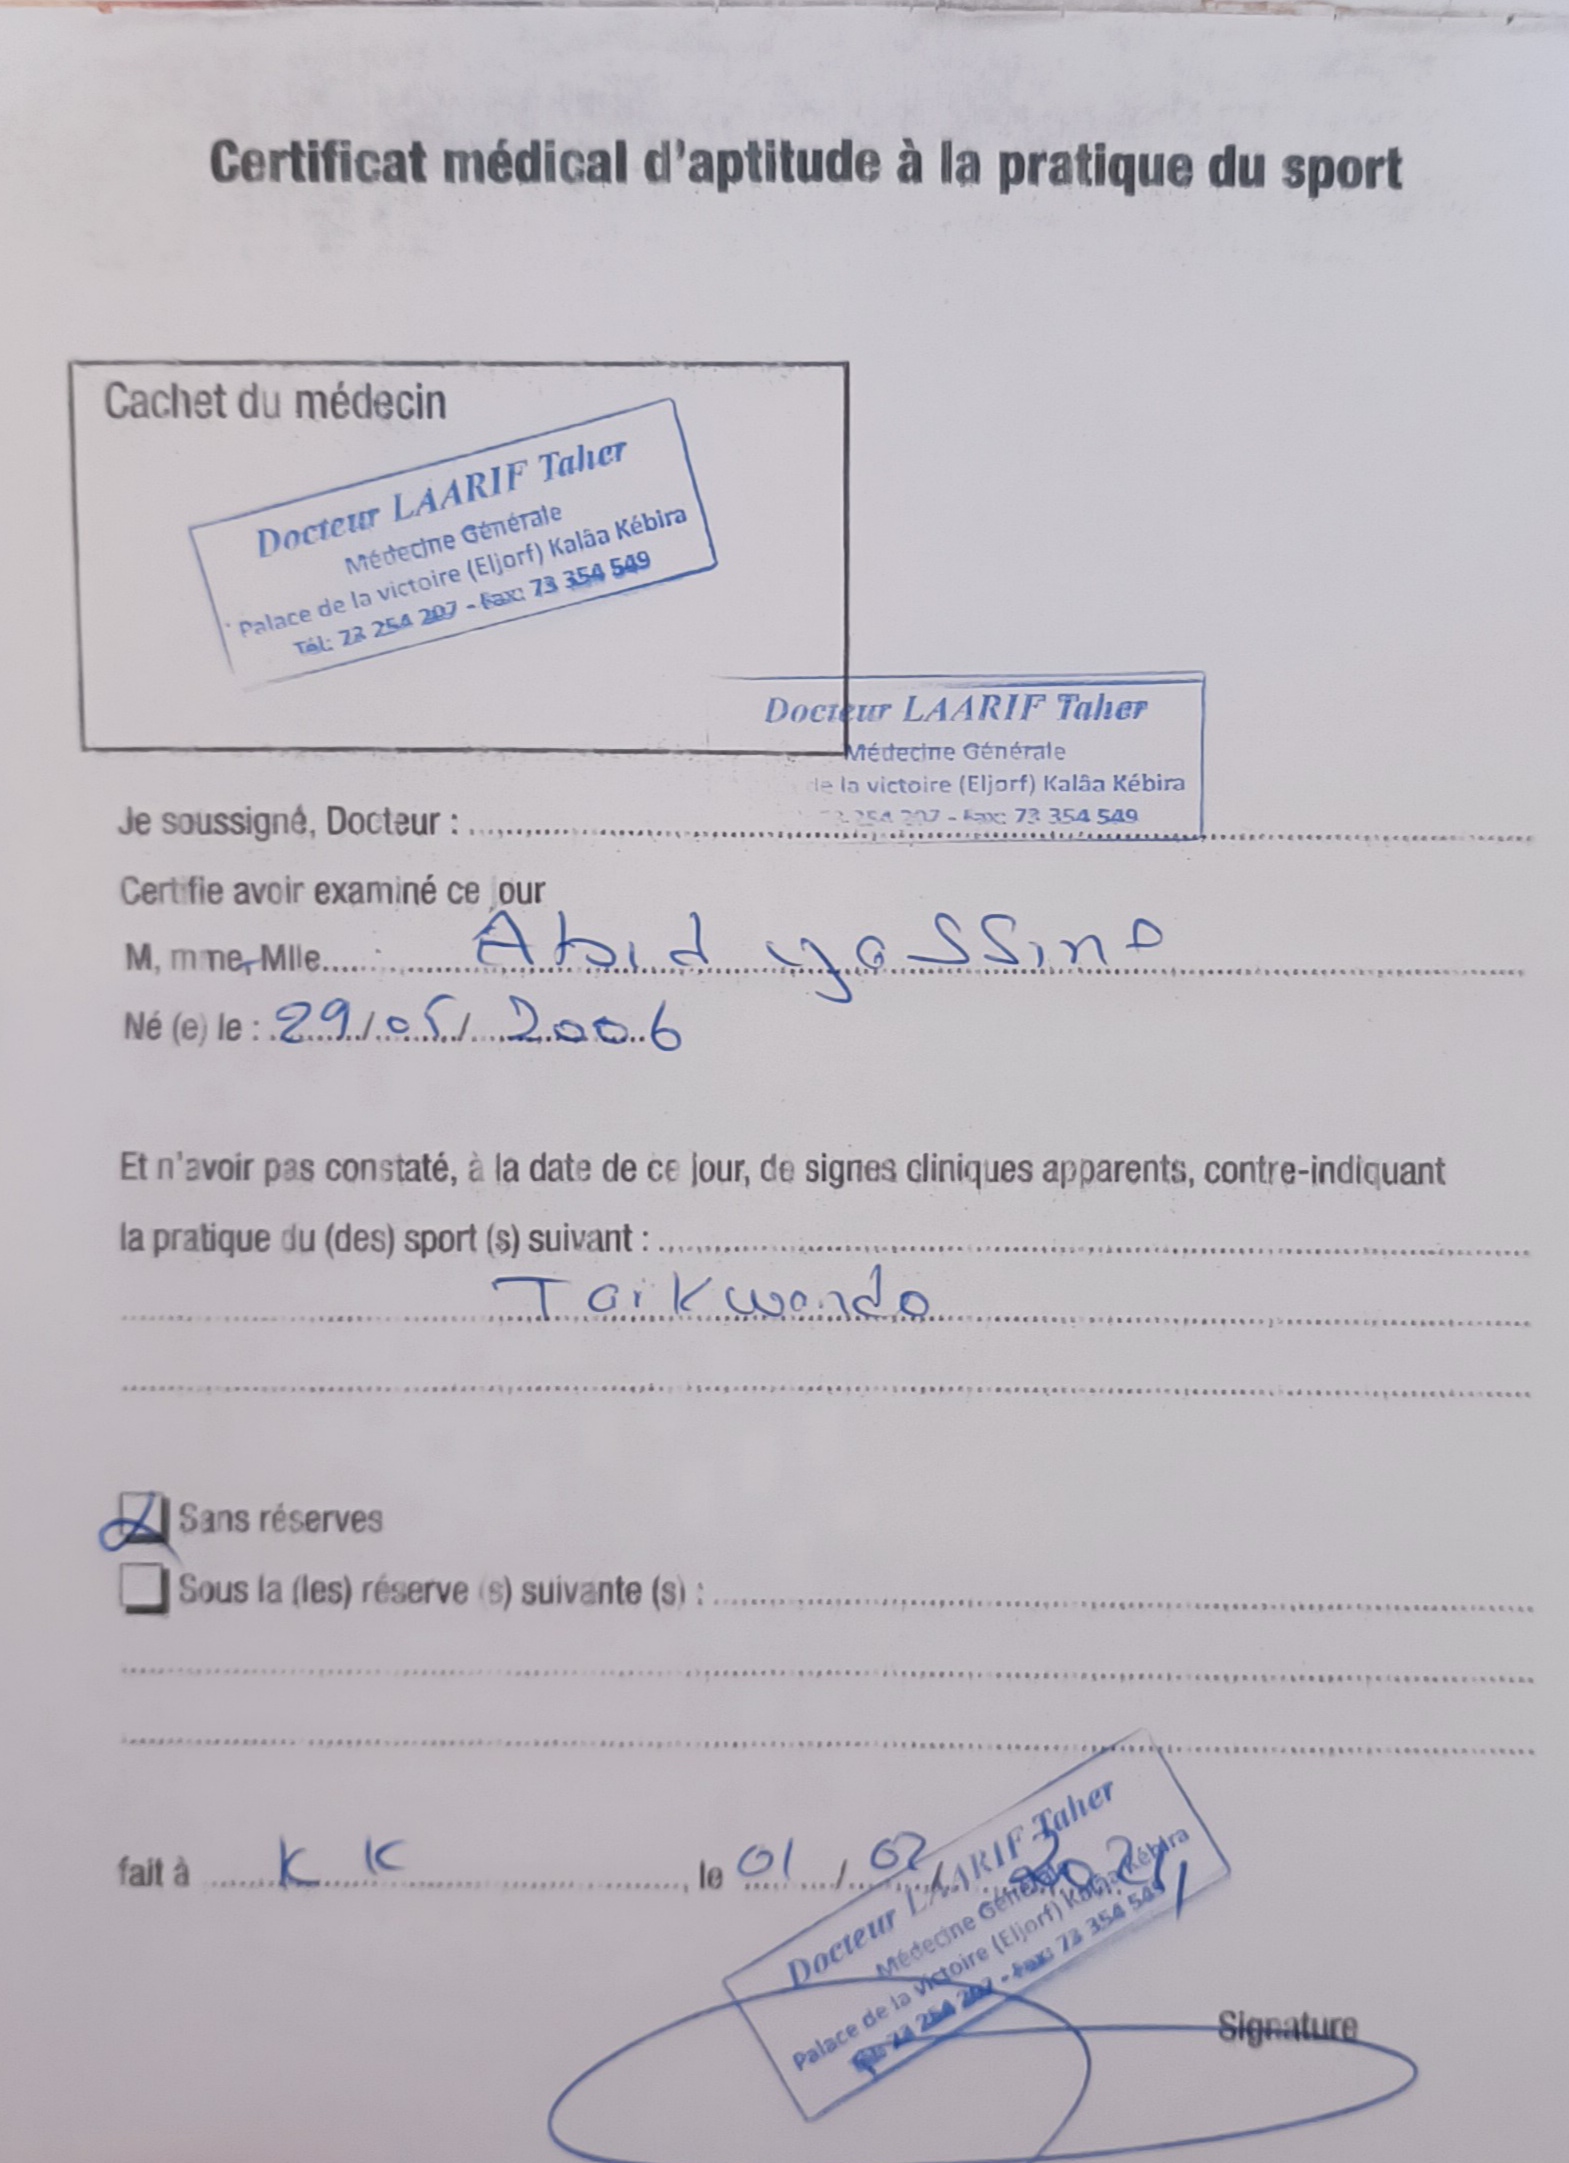 Certificat médical d'aptitude à la pratique du sport
Cachet du médecin
Docteur LAARIF Taher
Médecine Générale
Palace de la victoire (Eljorf) Kalâa Kébira
Tél: 73 254 207 - Fax: 73 354 549
Docteur LAARIF Taher
Médecine Générale
de la victoire (Eljorf) Kalâa Kébira
254 207 - Fax: 73 354 549
Je soussigné, Docteur :
Certifie avoir examiné ce jour
M, mme, Mlle : Abid yassine
Né (e) le : 29/05/2006
Et n'avoir pas constaté, à la date de ce jour, de signes cliniques apparents, contre-indiquant
la pratique du (des) sport (s) suivant :
Taikwondo
Sans réserves
Sous la (les) réserve (s) suivante (s) :
fait à KK, le 01/02/
Docteur LAARIF Taher
Médecine Générale
Palace de la victoire (Eljorf) Kalâa Kébira
73 254 207 - Fax: 73 354 549
Signature